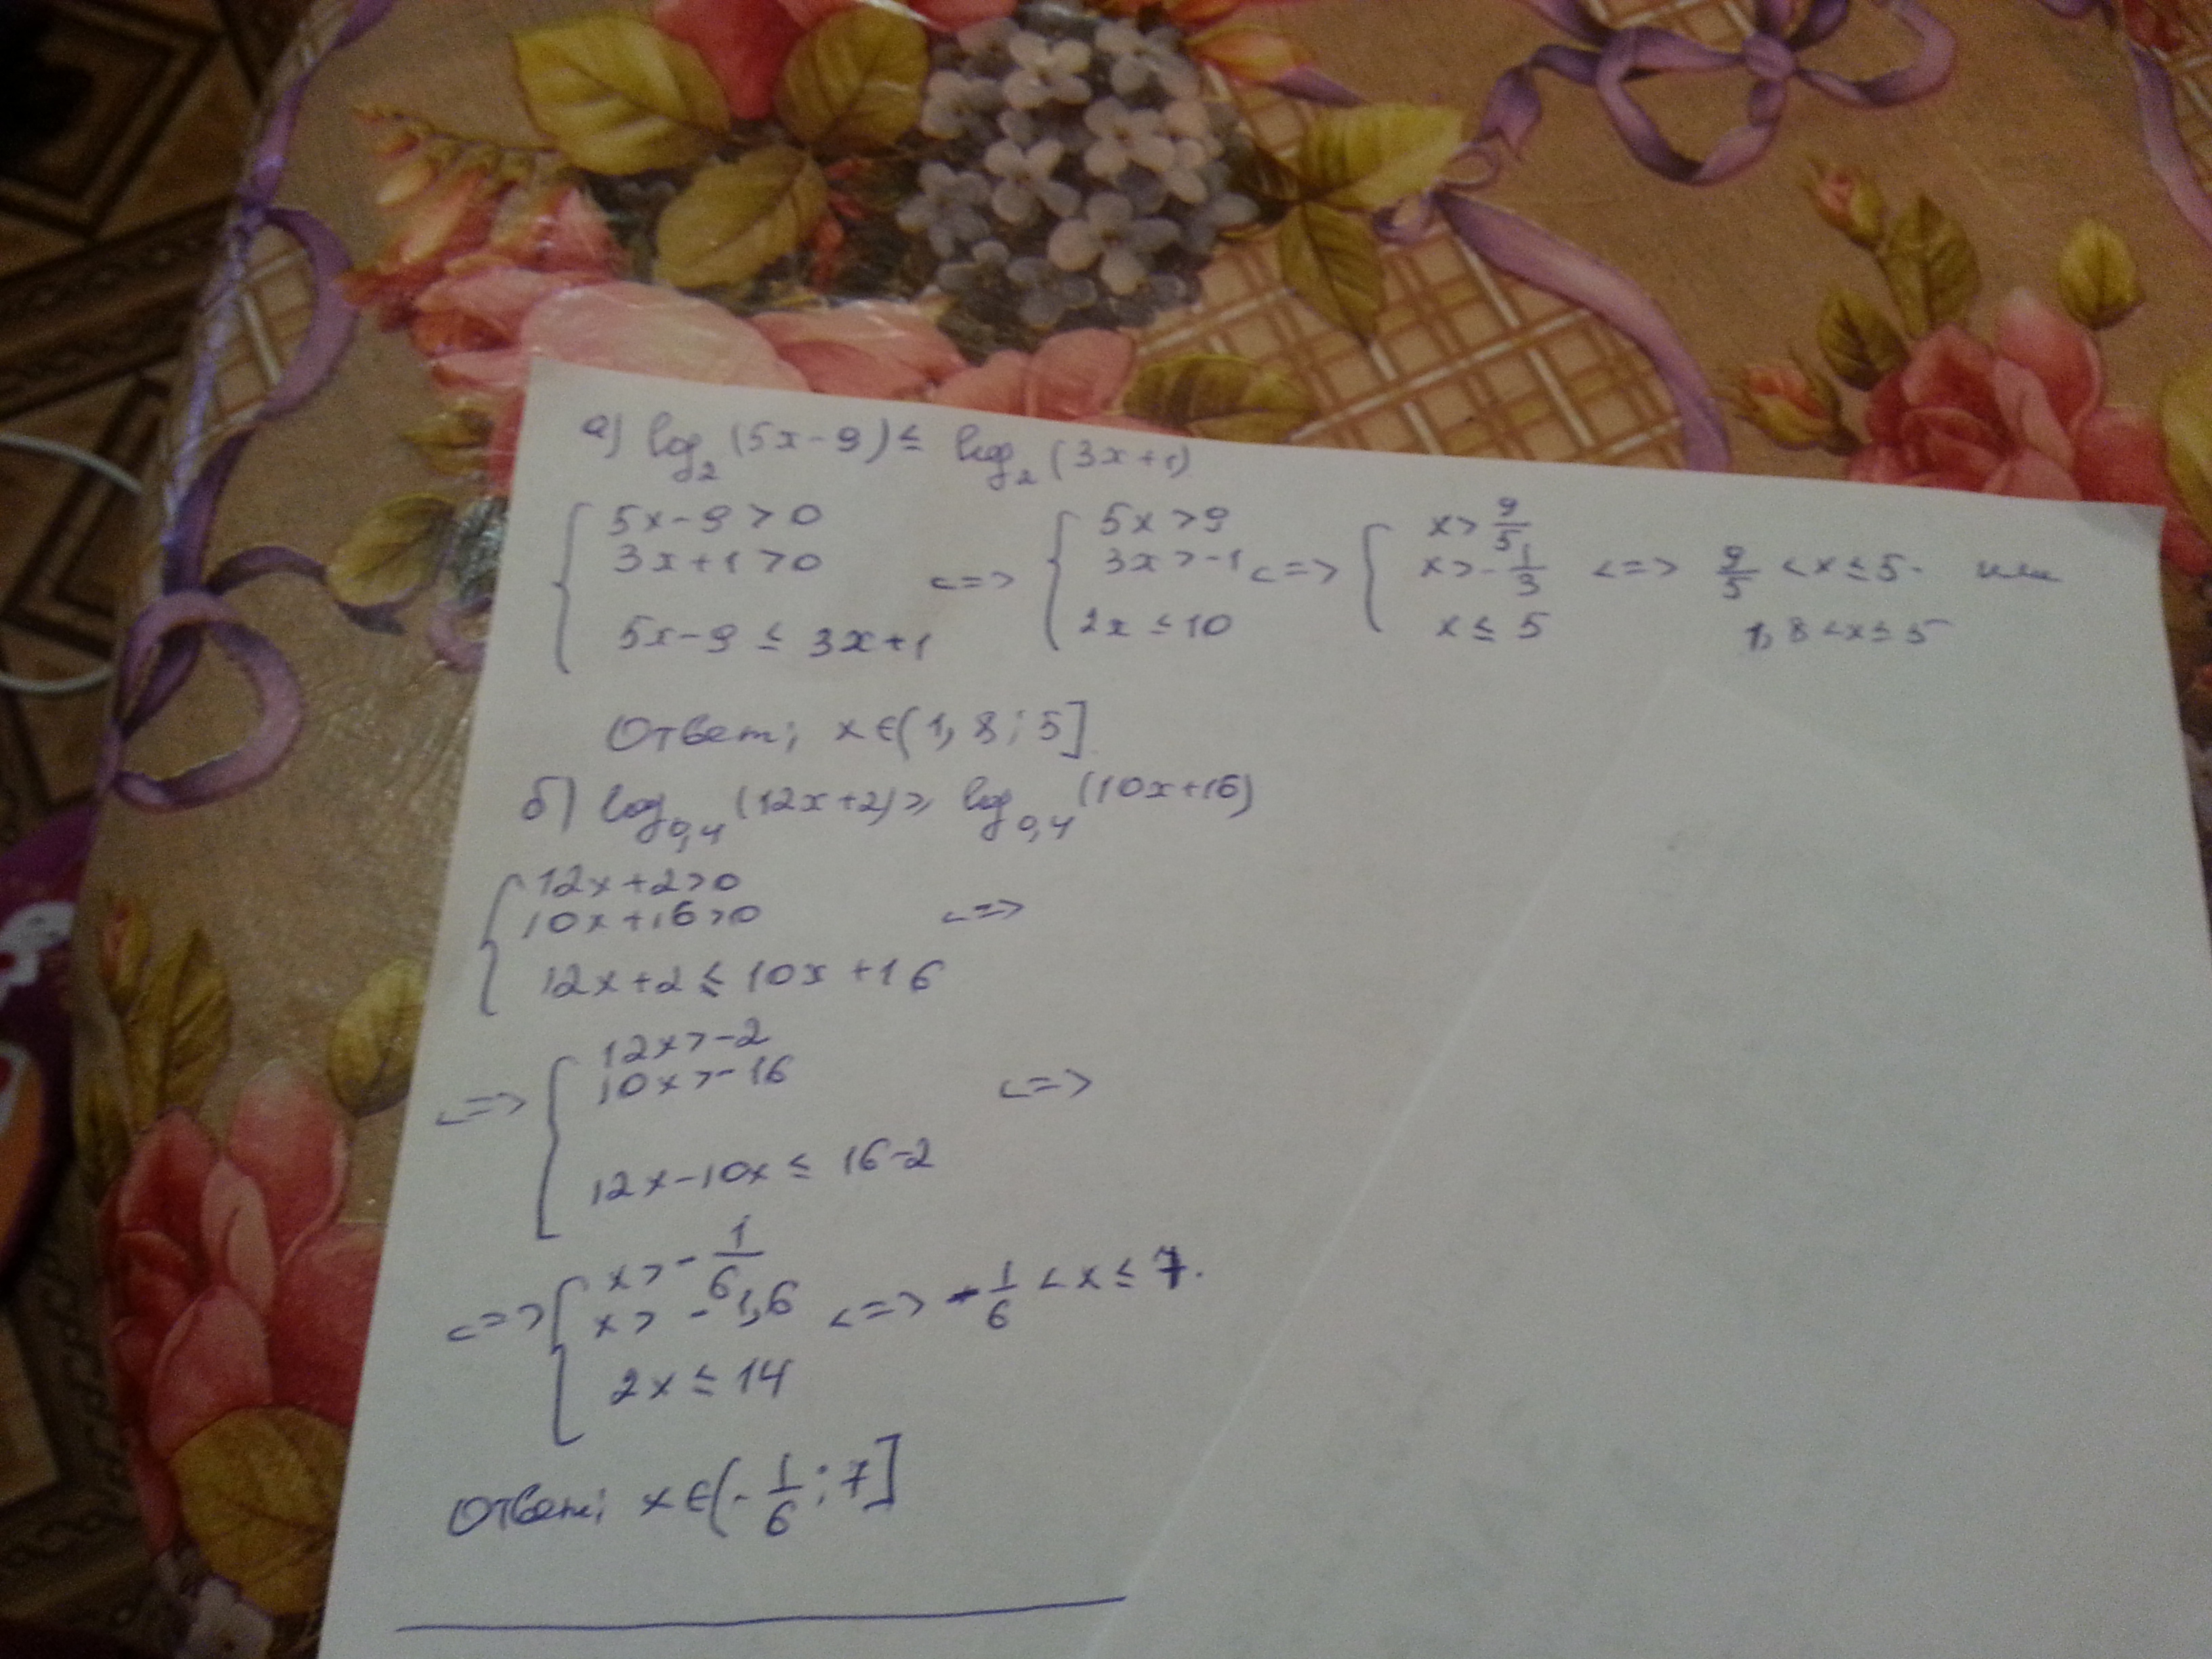 а) log₂(5x-9) ≤ log₂(3x+1)
{ 5x-9>0 3x+1>0 5x-9 ≤ 3x+1 <=> { 5x>9 3x>-1 2x ≤ 10 <=> { x> 9/5 x>-1/3 x ≤ 5 <=> 9/5 <x≤5. или
1,8<x≤5
Ответ; x∈(1,8;5]
б) log₀,₄(12x+2) ≥ log₀,₄(10x+16)
{ 12x+2>0
10x+16>0 <=>
12x+2 ≤ 10x+16
<=> { 12x>-2
10x>-16 <=>
12x-10x ≤ 16-2
<=> { x>-1/6
x>-1,6 <=> -1/6 <x≤7.
2x ≤ 14
Ответ; x∈(-1/6;7]